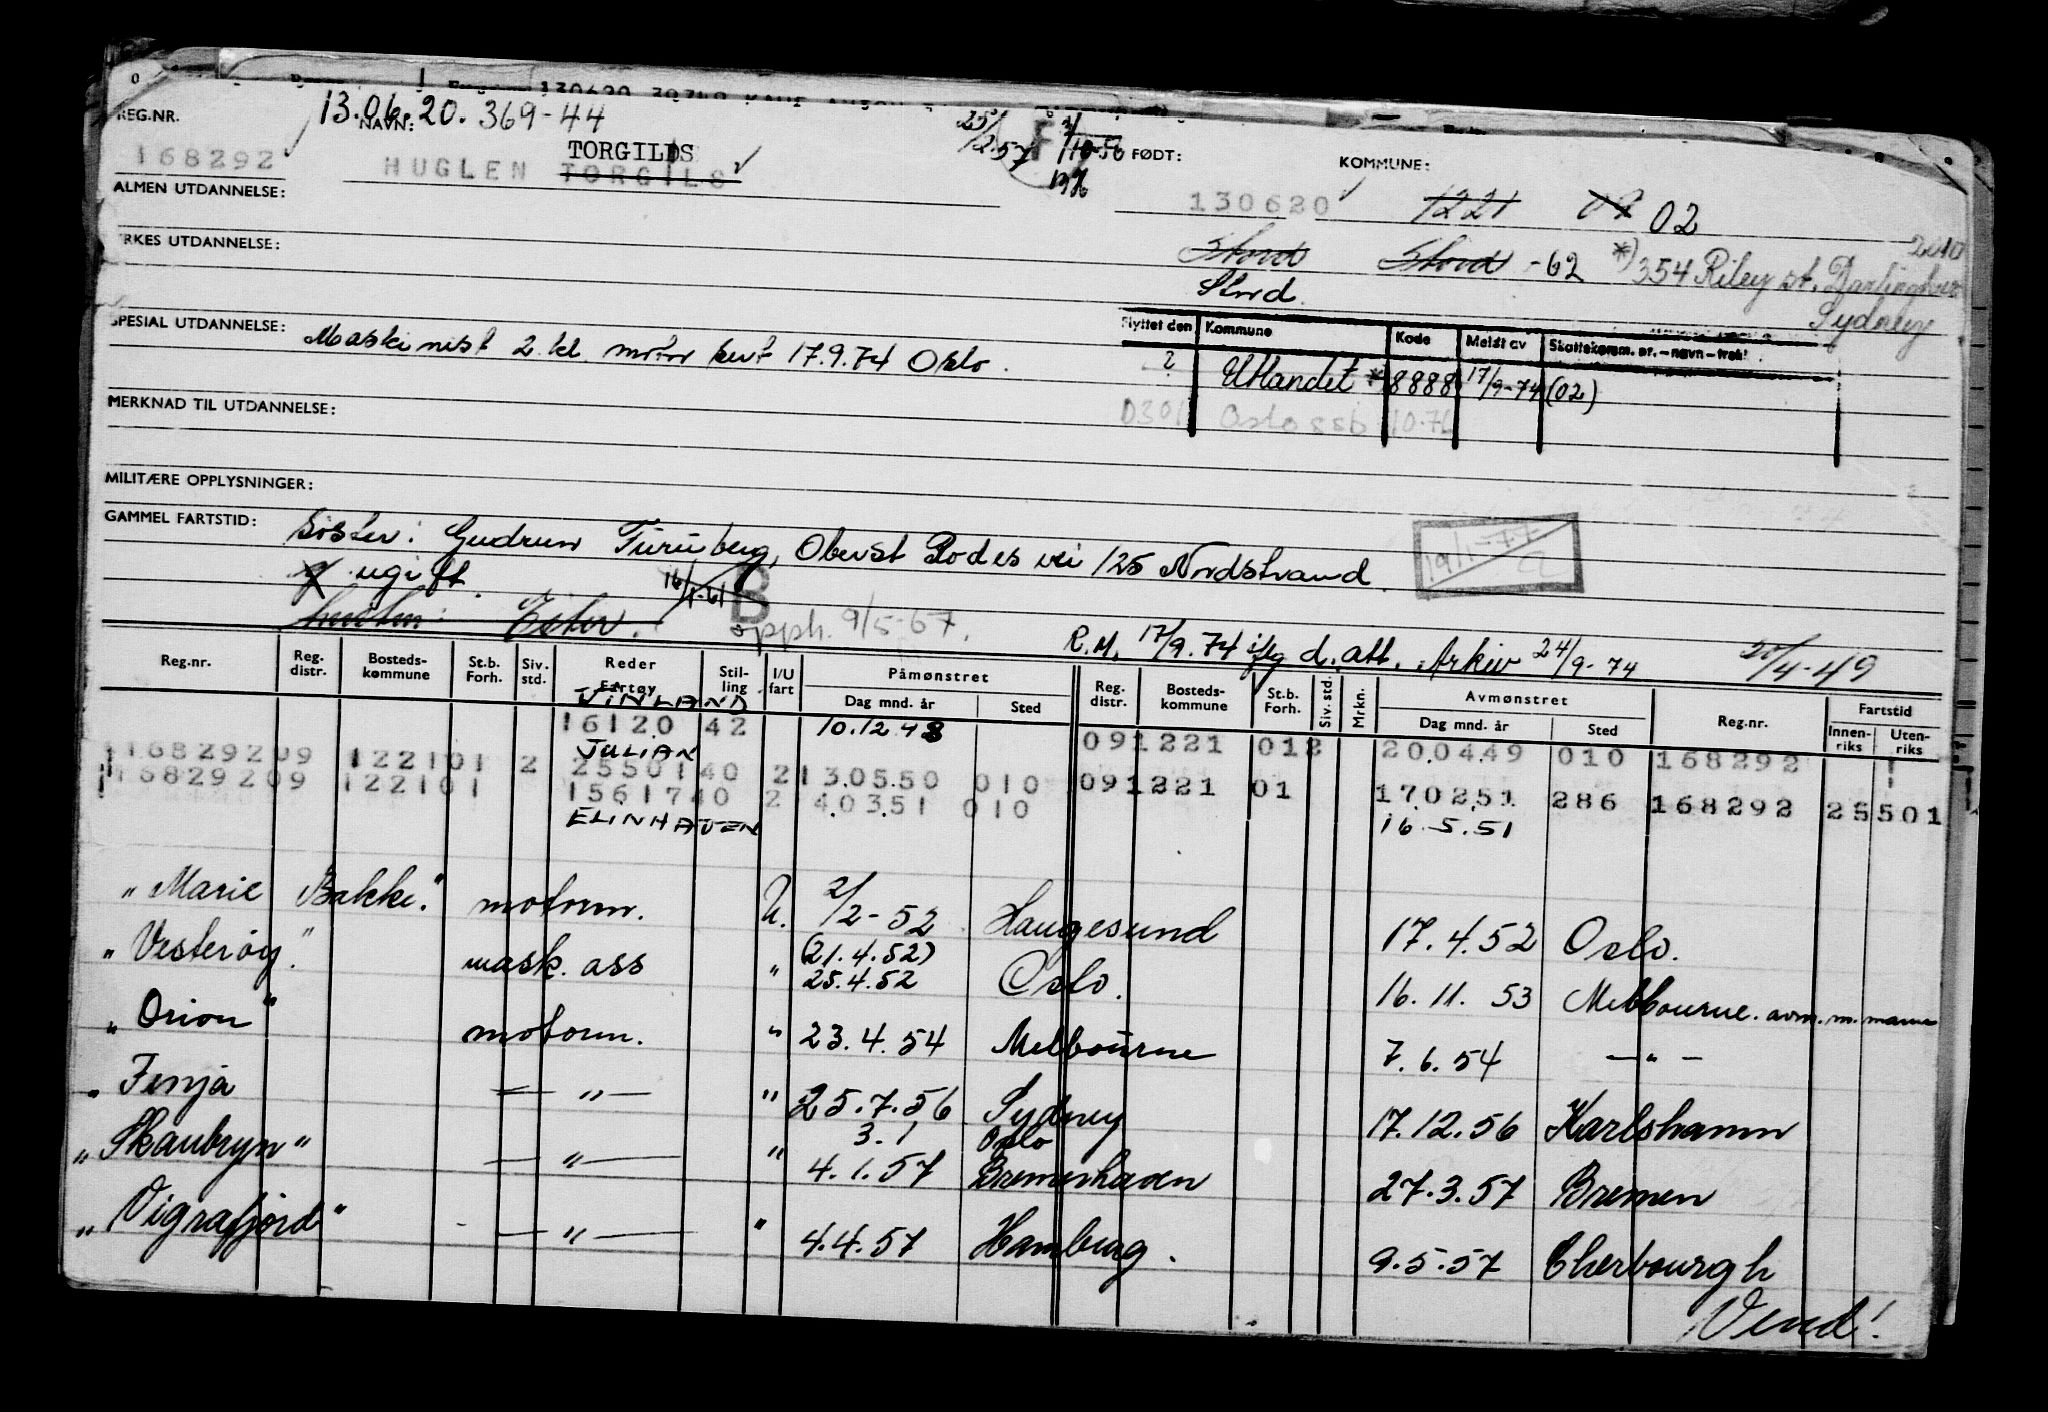 REG.NR. 13.06.20. 369-44
NAVN: 25/2.57 FØDT: KOMMUNE:
168292 HUGLEN TORGILS TORGILDS 130620 1221 09 02
ALMEN UTDANNELSE:
YRKES UTDANNELSE: Stord Stord -62 *) 354 Riley st. Darlinghurst 2010
Stord Sydney
SPESIAL UTDANNELSE: Maskinist 2 kl motor sert 17.9.74 Oslo.
Flyttet den Kommune Kode Meldt av Skattekomm. nr.-navn-trekk
? Utlandet * 8888 17/9-74 (02)
0301 Oslo ssb 10.76
MERKNAD TIL UTDANNELSE:
MILITÆRE OPPLYSNINGER:
GAMMEL FARTSTID: Søster: Gudrun Turuberg, Oberst Rodes vei 125 Nordstrand
ugift. 16/1-61 B 19/1-77
Ester. opph. 9/5-67.
R.M. 17/9.74 iflg d. att. Arkiv 24/9-74 20/4-49
Reg.nr. Reg. distr. Bosteds-kommune St.b. Forh. Siv. std. Reder Fartøy Stil-ling I/U fart Påmønstret Dag mnd. år Sted Reg. distr. Bosteds-kommune St.b. Forh. Siv. std. Mrkn. Avmønstret Dag mnd. år Sted Reg.nr. Fartstid Innen-riks Uten-riks
VINLAND
16120 42 10.12.48 091221 012 200449 010 168292
JULIAN
168292 09 1221 01 2 25501 40 2 130550 010 091221 01 170251 286 168292 25501
168292 09 1221 01 15617 40 2 40351 010
ELINHAVEN 16.5.51
"Marie Bakke." motorm. U. 2/2-52 Haugesund 17.4.52 Oslo.
"Vesterøy." mask. ass " (21.4.52) 25.4.52 Oslo. 16.11.53 Melbourne. avm. m. manne
"Orion" motorm. " 23.4.54 Melbourne 7.6.54 —"—
"Fenja —"— " 25.7.56 Sydney 17.12.56 Karlshamn
3.1 Oslo
"Skaubryn" —"— " 4.1.57 Bremerhaven 27.3.57 Bremen
"Vigrafjord" —"— " 4.4.57 Hamburg. 9.5.57 Cherbourgh
Vend!